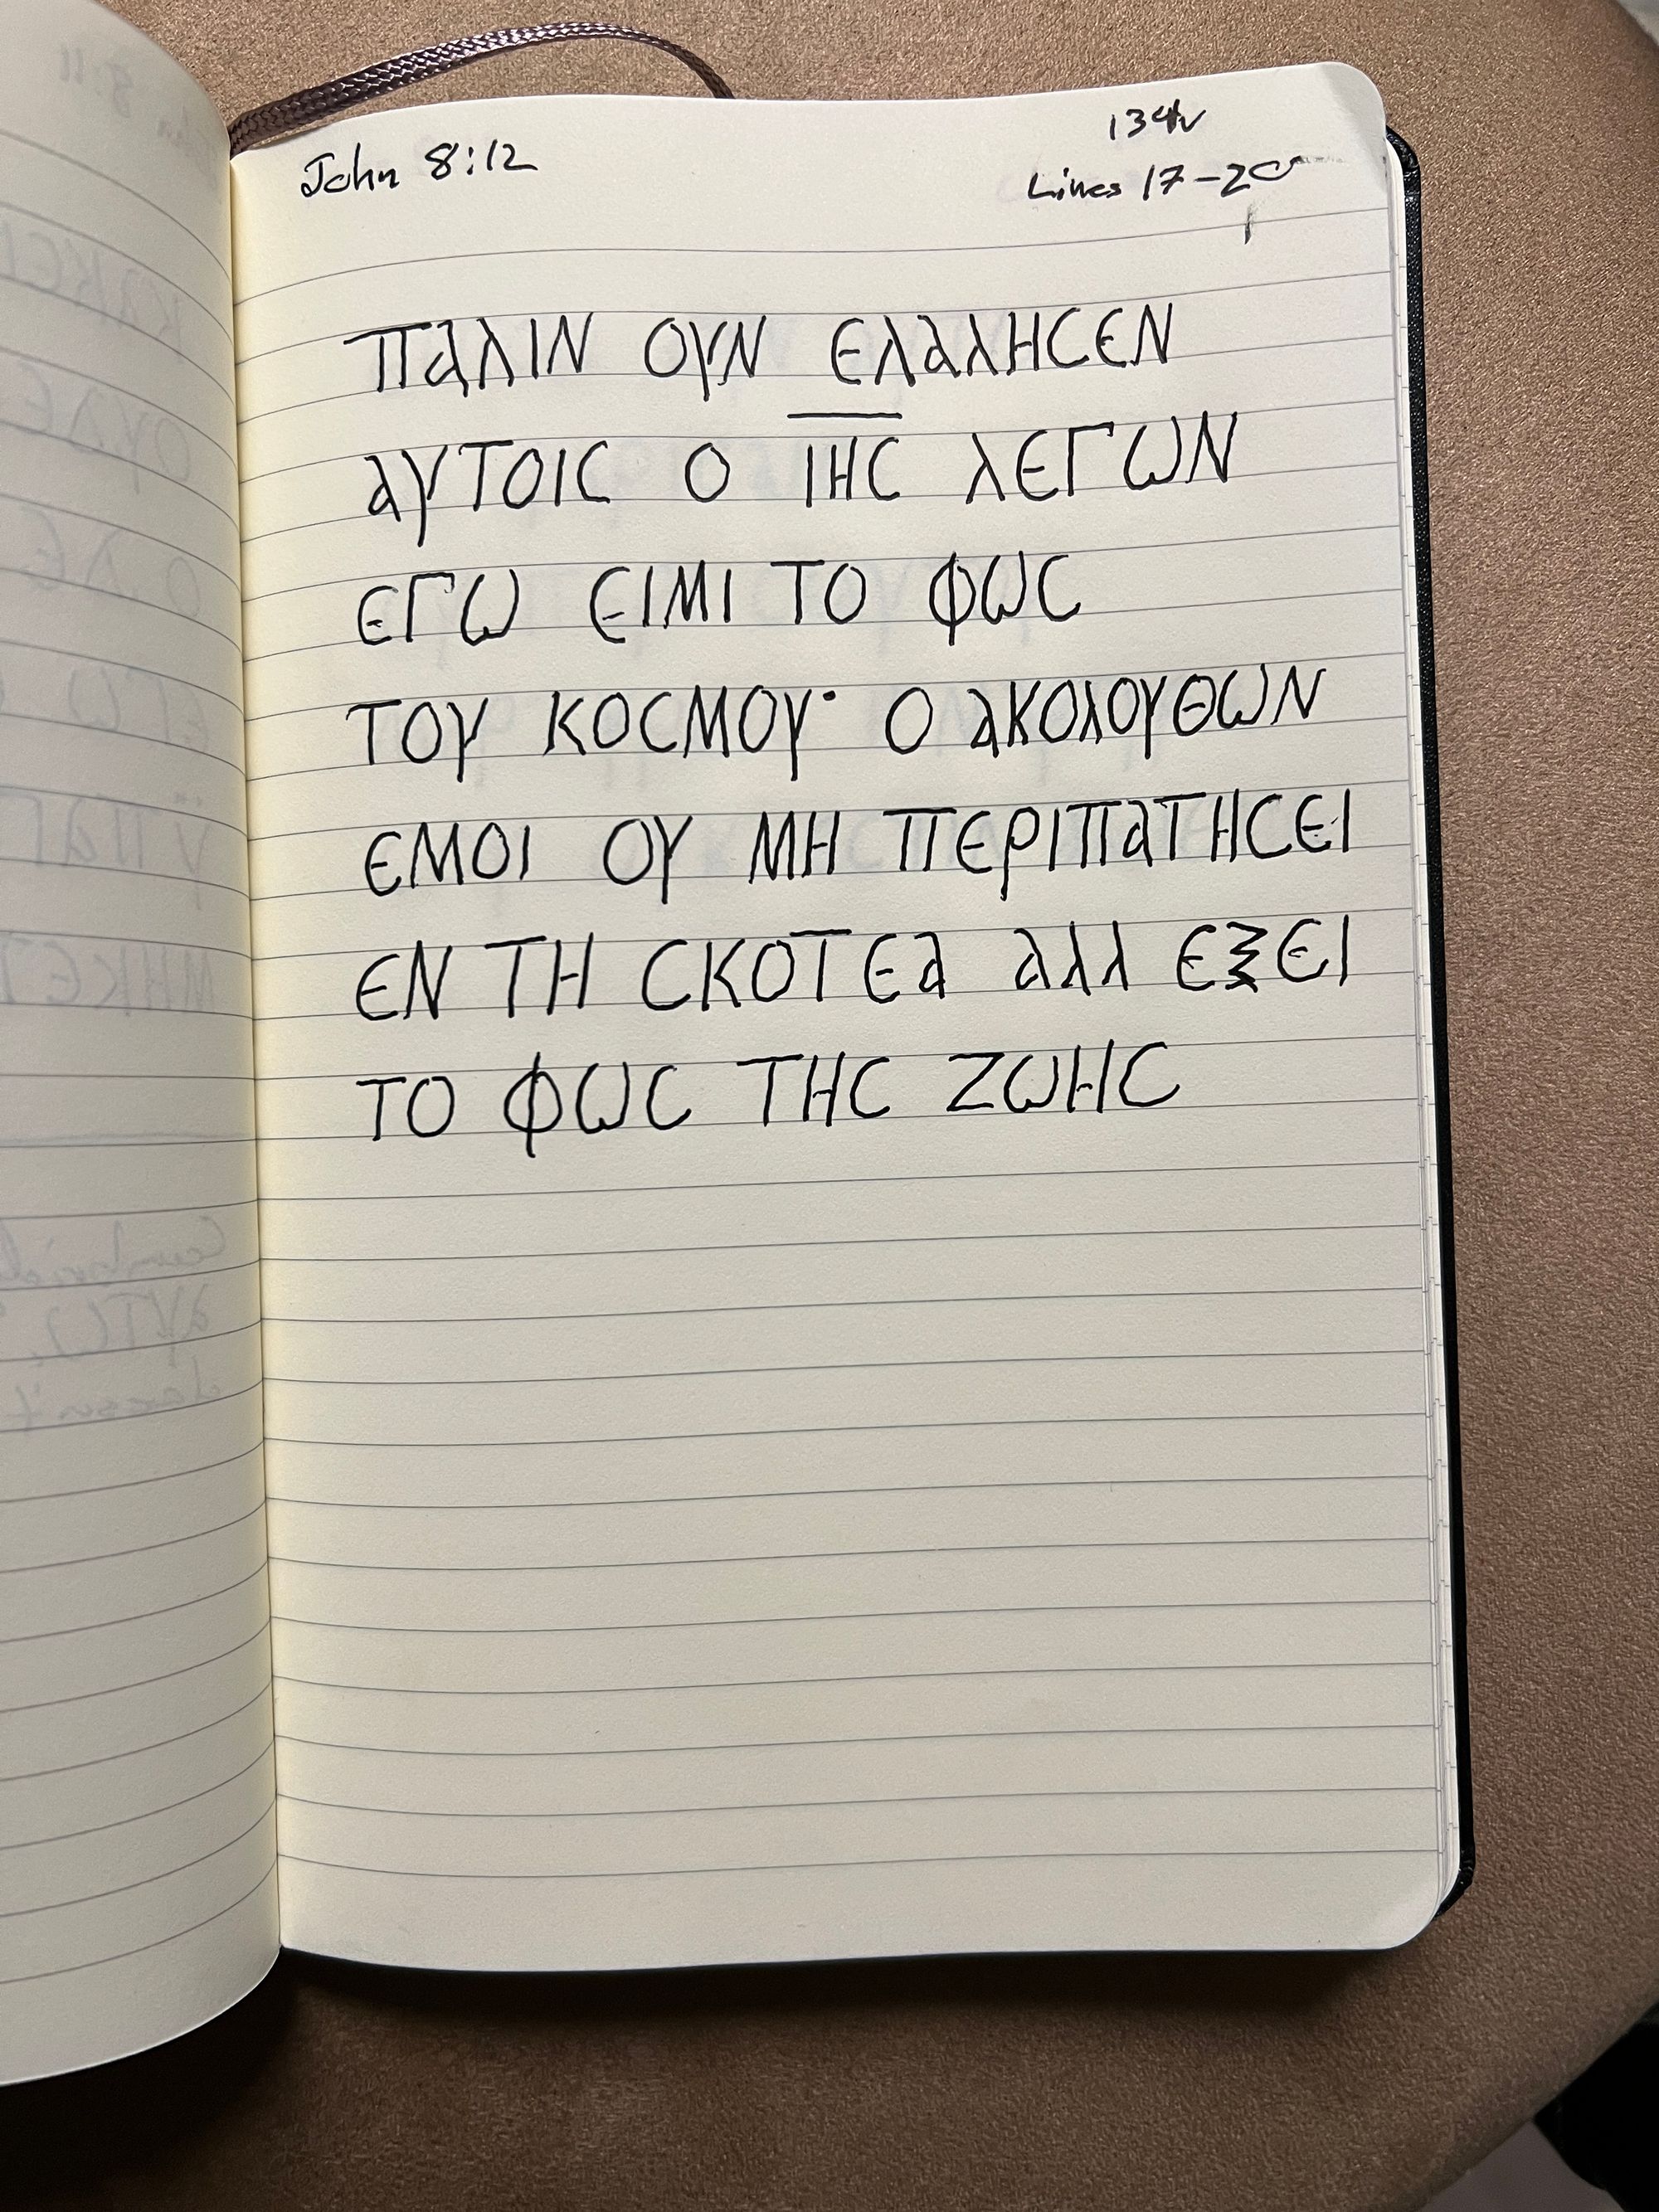 John 8:12
134v
Lines 17-20
ΠΑΛΙΝ ΟΥΝ ΕΛΑΛΗϹΕΝ
ΑΥΤΟΙϹ Ο Ι̅Η̅Ϲ̅ ΛΕΓΩΝ
ΕΓΩ ΕΙΜΙ ΤΟ ΦΩϹ
ΤΟΥ ΚΟϹΜΟΥ· Ο ΑΚΟΛΟΥΘΩΝ
ΕΜΟΙ ΟΥ ΜΗ ΠΕΡΙΠΑΤΗϹΕΙ
ΕΝ ΤΗ ϹΚΟΤΕΑ ΑΛΛ ΕΞΕΙ
ΤΟ ΦΩϹ ΤΗϹ ΖΩΗϹ